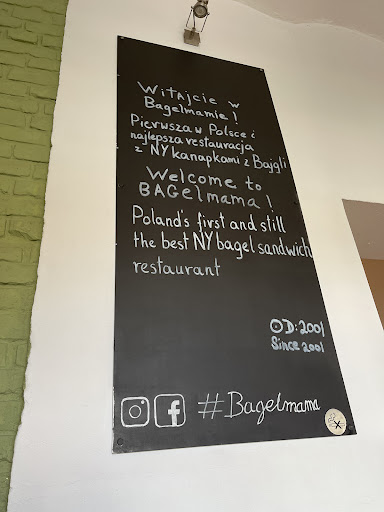 Witajcie w
Bagelmamie!
Pierwsza w Polsce i
najlepsza restauracja
z NY kanapkami z Bajgli
Welcome to
BAGelmama!
Poland's first and still
the best NY bagel sandwich
restaurant
OD: 2001
Since 2001
#Bagelmama